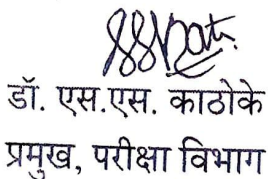 डॉ. एस.एस. काठोके
प्रमुख, परीक्षा विभाग